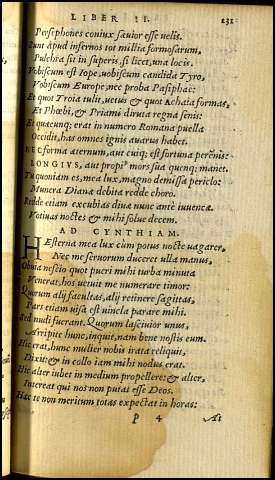 LIBER II. 131
Persephones coniux sæuior esse uelis.
Sunt apud infernos tot millia formosarum,
Pulchra sit in superis, si licet, una locis.
Vobiscum est Iope, uobiscum candida Tyro,
Vobiscum Europe, nec proba Pasiphae:
Et quot Troia tulit, uetus & quot Achaia formas,
Et Phœbi, & Priami diruta regna senis:
Et quæcunq; erat in numero Romana puella
Occidit, has omneis ignis auarus habet.
NEC forma æternum, aut cuiq; est fortuna perēnis:
LONGIVS, aut propi⁹ mors sua quenq; manet.
Tu quoniam es, mea lux, magno demissa periclo:
Munera Dianæ debita redde choro.
Redde etiam excubias diuæ nunc ante iuuencæ.
Votiuas noctes & mihi solue decem.
AD CYNTHIAM.
HEsterna mea lux cùm potus nocte uagarer,
Nec me seruorum duceret ulla manus,
Obuia nescio quot pueri mihi turba minuta
Venerat, hos uetuit me numerare timor:
Quorum alij faculas, alij retinere sagittas,
Pars etiam uisa est uincla parare mihi.
Sed nudi fuerant. Quorum lasciuior unus,
Arripite hunc, inquit, nam bene nostis eum
Hic erat, hunc mulier nobis irata reliquit,
Dixit: & in collo iam mihi nodus erat.
Hic alter iubet in medium propellere: & alter,
Intereat qui nos non putat esse Deos.
Hæc te non meritum totas expectat in horas:
P 4 At